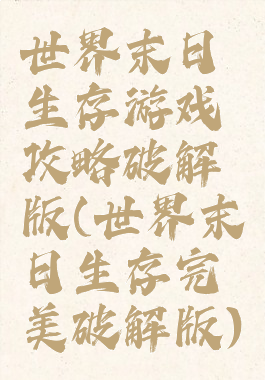 世界末日
生存游戏
攻略破解
版(世界末
日生存完
美破解版)